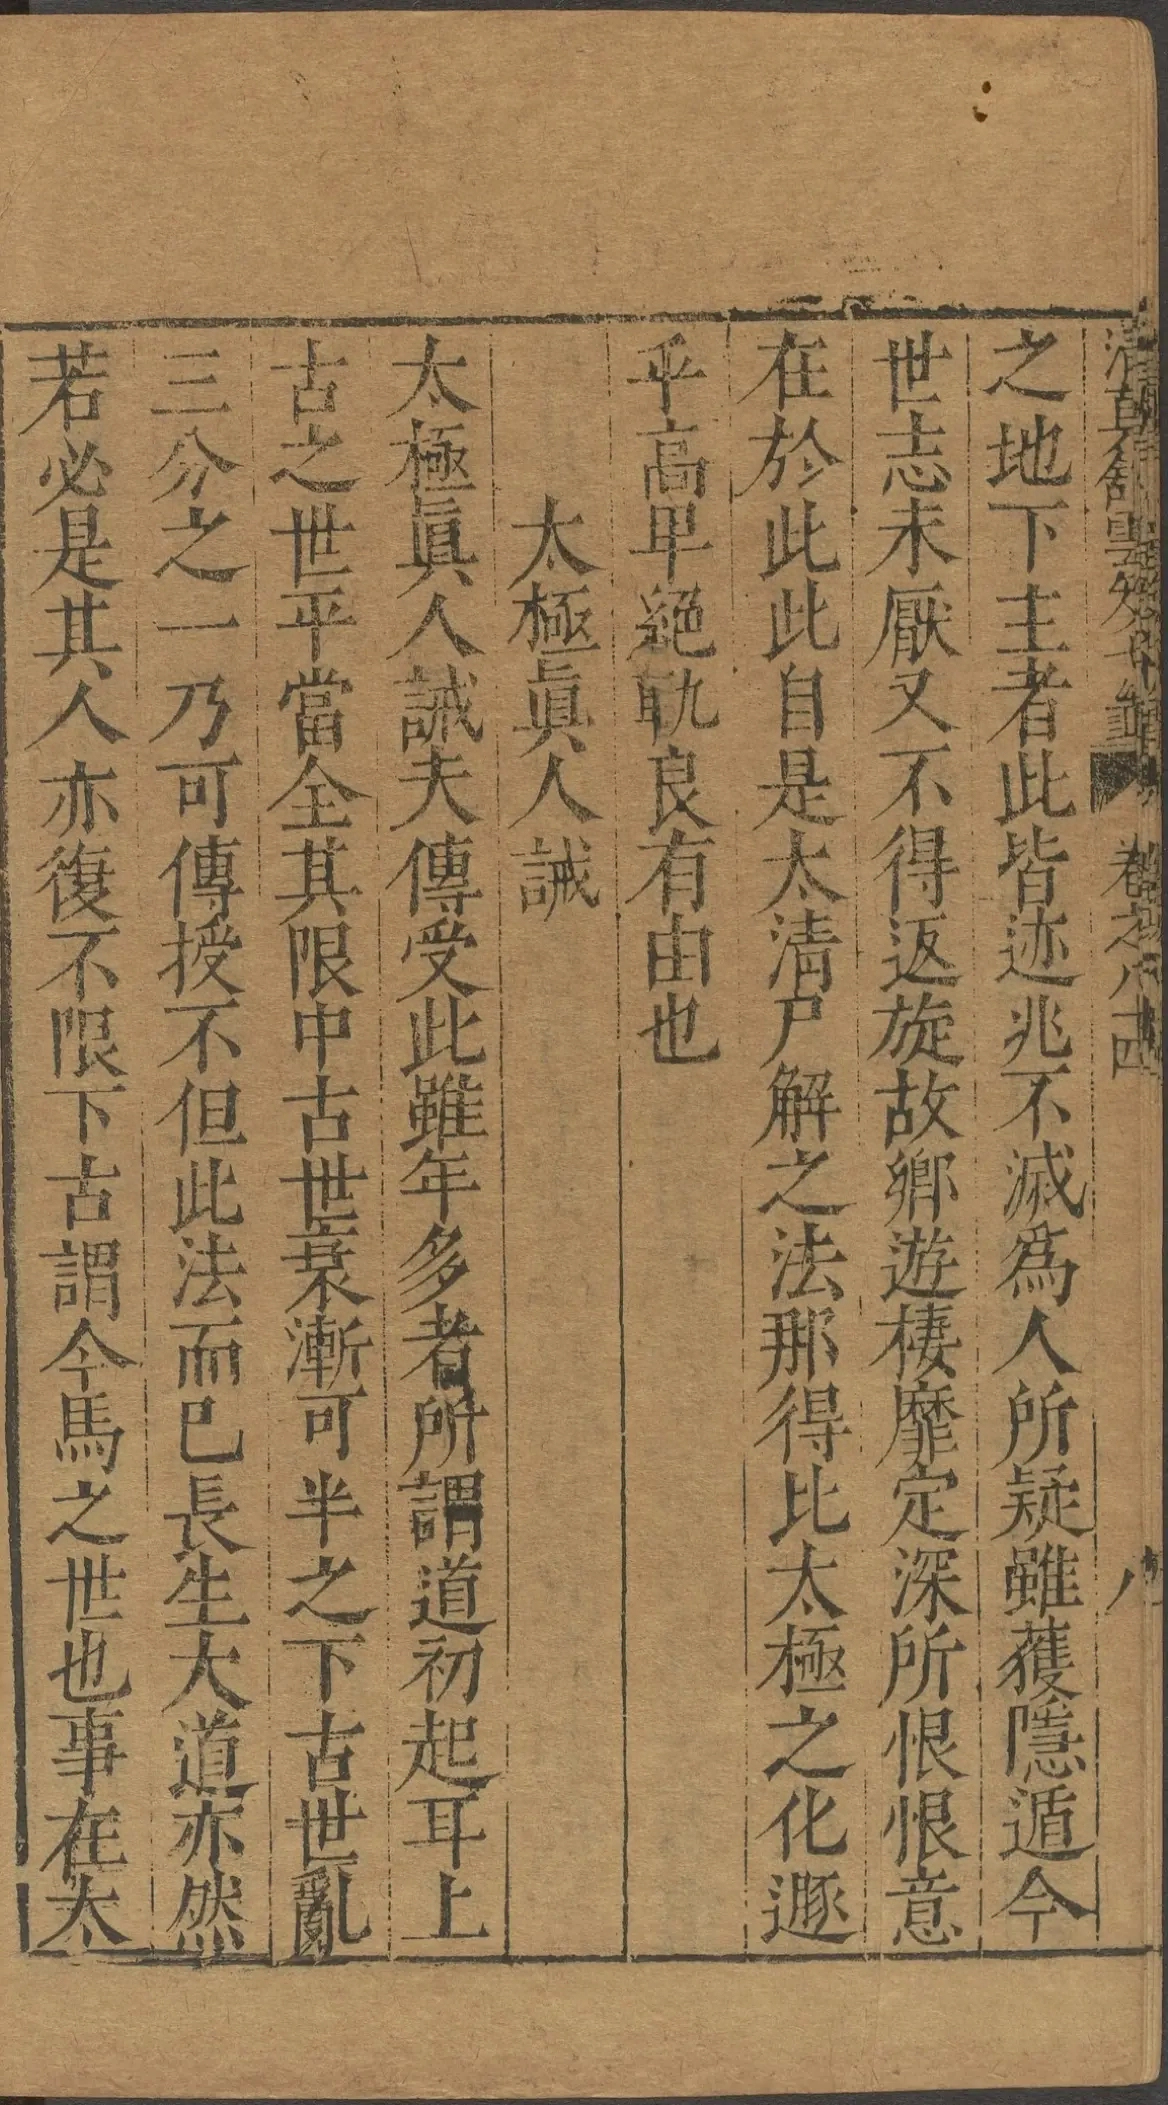 之地下主者此皆迹兆不滅爲人所疑雖獲隱遁今
世志未厭又不得返旋故鄉遊棲靡定深所恨恨意
在於此此自是太清尸解之法那得比太極之化遯
乎高卑絕軌良有由也
太極眞人誡
太極眞人誡夫傳受此雖年多者所謂道初起耳上
古之世平當全其限中古世衰漸可半之下古世亂
三分之一乃可傳授不但此法而已長生大道亦然
若必是其人亦復不限下古謂今馬之世也事在太